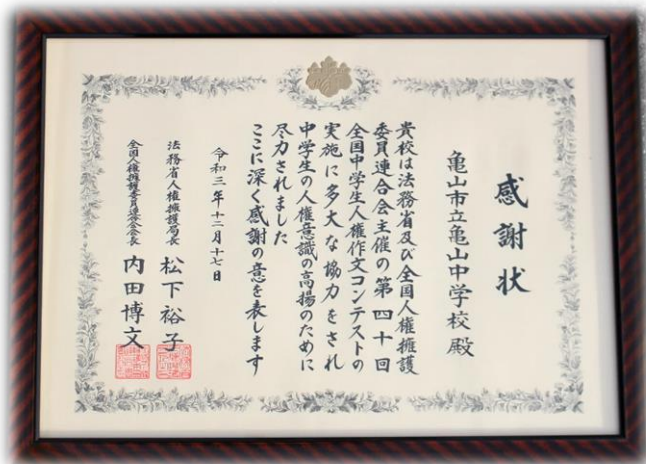 感謝状
亀山市立亀山中学校殿
貴校は法務省及び全国人権擁護
委員連合会主催の第四十回
全国中学生人権作文コンテストの
実施に多大な協力をされ
中学生の人権意識の高揚のために
尽力されました
ここに深く感謝の意を表します
令和三年十二月十七日
法務省人権擁護局長 松下裕子
全国人権擁護委員連合会会長 内田博文